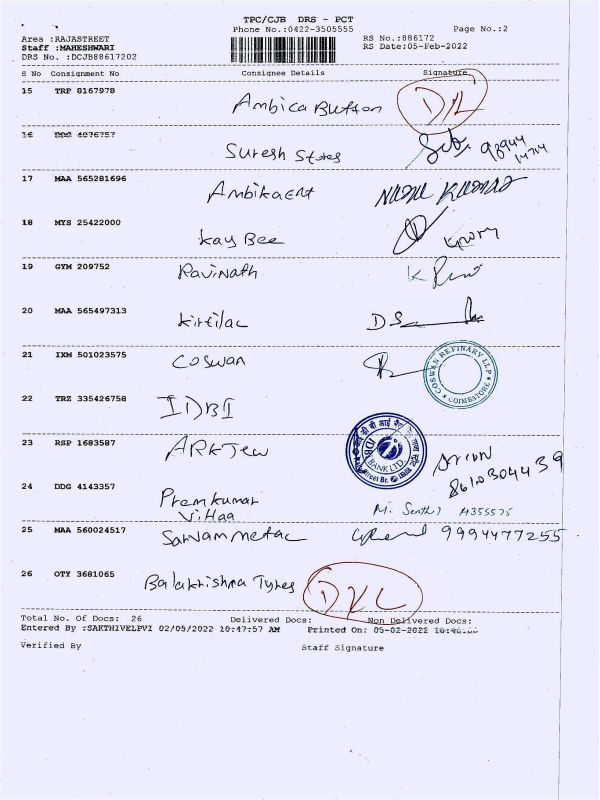 TPC/CJB DRS - PCT
Phone No.:0422-3505555 Page No.:2
Area :RAJASTREET RS No.:886172
Staff :MAHESHWARI RS Date:05-Feb-2022
DRS No. :DCJB88617202
S No Consignment No Consignee Details Signature
15 TRP 8167978
Ambica Button
16 DDG 4076757
Suresh Stores 98944
14714
17 MAA 565281696
Ambika Ent
18 MYS 25422000
Kay Bee
19 GYM 209752
Ravinath
20 MAA 565497313
Kirtilac
21 IXM 501023575
Coswan
COSWAN REFINARY LLP
COIMBATORE
22 TRZ 335426758
IDBI
IDBI BANK LTD.
23 RSP 1683587
ARK Jew
8610304439
24 DDG 4143357
Premkumar
Vihaa M. Senthil
25 MAA 560024517
Sarvam metac 9994477255
26 OTY 3681065
Balakrishna Tyres
Total No. Of Docs: 26 Delivered Docs: Non Delivered Docs:
Entered By :SAKTHIVELPVI 02/05/2022 10:47:57 AM Printed On: 05-02-2022
Verified By Staff Signature